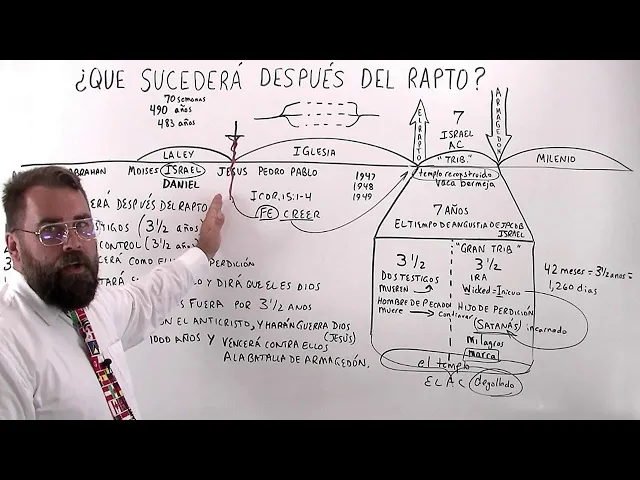 ¿QUE SUCEDERÁ DESPUÉS DEL RAPTO?
70 semanas
490 años
483 años
EL RAPTO
7
ISRAEL
AC
ARMAGEDON
LA LEY
IGLESIA
"TRIB."
MILENIO
ABRAHAN MOISES ISRAEL JESUS PEDRO PABLO
DANIEL
1947
1948
1949
templo reconstruido
vaca bermeja
1COR.15:1-4
FE CREER
7 AÑOS
EL TIEMPO DE ANGUSTIA DE JACOB
ISRAEL
"GRAN TRIB"
3 1/2
DOS TESTIGOS
MUEREN
HOMBRE DE PECADO
muere → continuar
3 1/2
IRA
Wicked = Inicuo
HIJO DE PERDICIÓN
(SATANÁS) incarnado
milagros
marca
el templo
EL AC degollado
42 meses = 3 1/2 años =
1,260 dias
ERÁ DESPUÉS DEL RAPTO
STIGOS (3 1/2 años)
CONTROL (3 1/2 años)
PERDICIÓN
Y DIRÁ QUE EL ES DIOS
FUERA POR 3 1/2 AÑOS
ON EL ANTICRISTO, Y HARÁN GUERRA DIOS
(JESÚS)
1000 AÑOS Y VENCERÁ CONTRA ELLOS
A LA BATALLA DE ARMAGEDÓN.